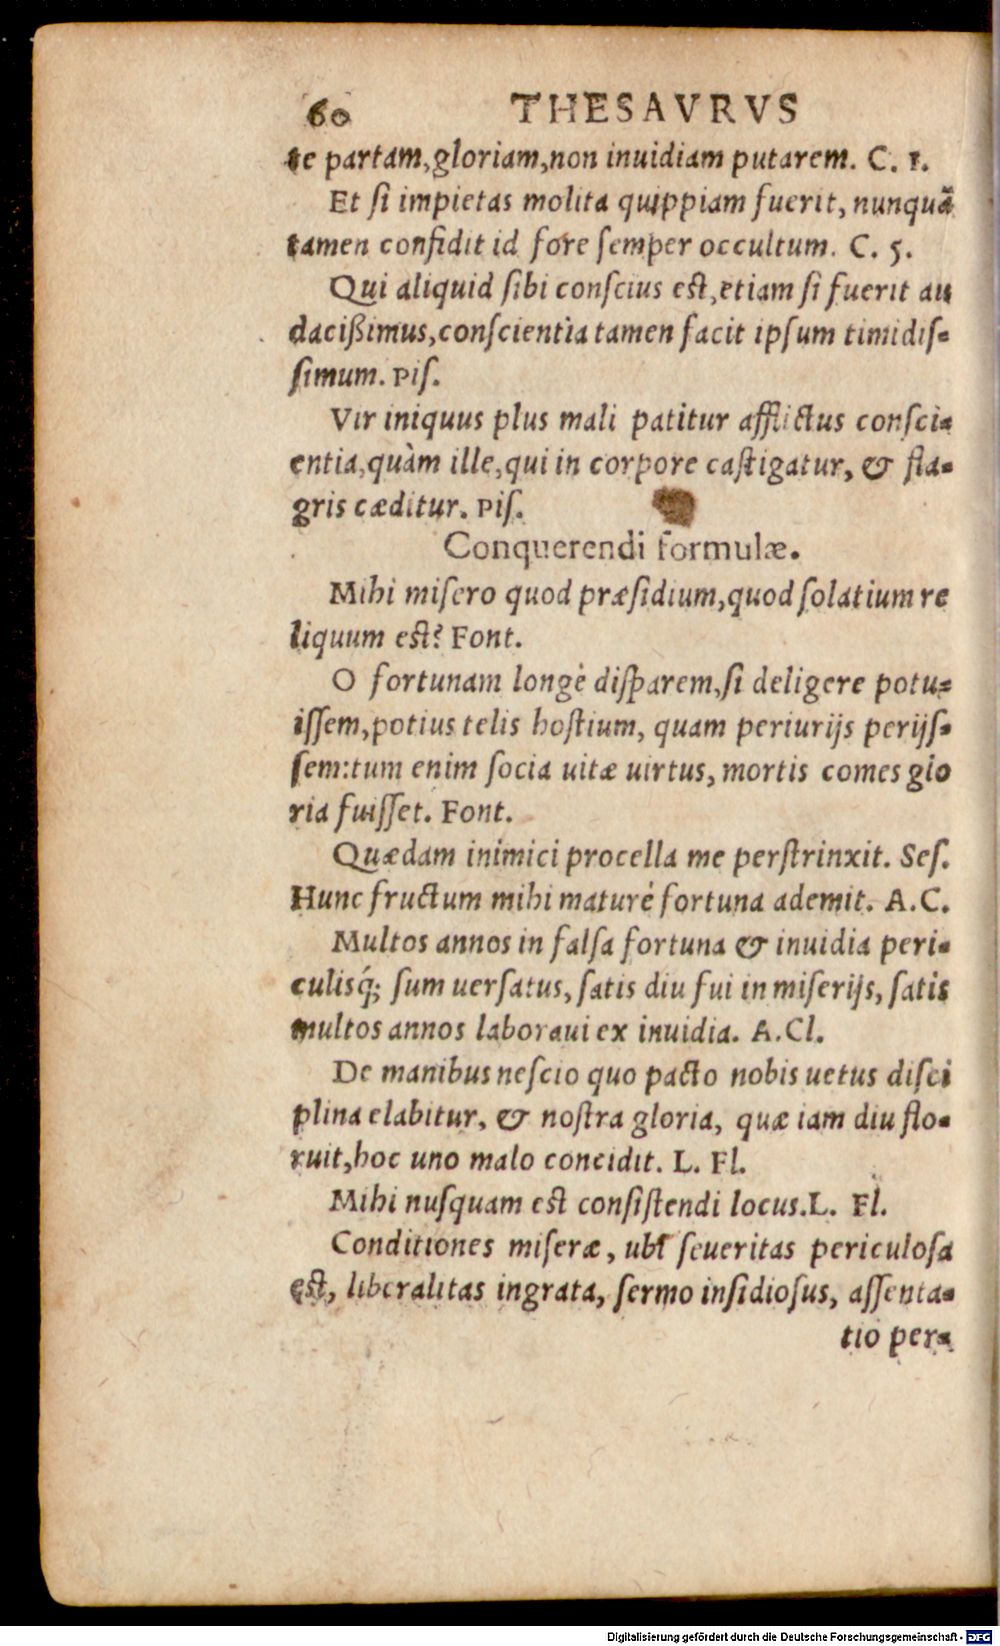 60 THESAVRVS
te partam,gloriam,non inuidiam putarem. C. 1.
Et ſi impietas molita quippiam fuerit, nunquã
tamen confidit id fore ſemper occultum. C. 5.
Qui aliquid ſibi conſcius est,etiam ſi fuerit au
dacißimus,conſcientia tamen facit ipſum timidiſ-
ſimum. Piſ.
Vir iniquus plus mali patitur afflictus conſci-
entia,quàm ille,qui in corpore caſtigatur, & fla-
gris cæditur. Piſ.
Conquerendi formulæ.
Mihi miſero quod præſidium,quod ſolatium re
liquum eſt? Font.
O fortunam longè diſparem,ſi deligere potu-
iſſem,potius telis hoſtium, quam periurijs perijſ-
ſem:tum enim ſocia uitæ uirtus, mortis comes glo
ria fuiſſet. Font.
Quædam inimici procella me perſtrinxit. Seſ.
Hunc fructum mihi maturè fortuna ademit. A.C.
Multos annos in falſa fortuna & inuidia peri-
culisq́; ſum uerſatus, ſatis diu fui in miſerijs, ſatis
multos annos laboraui ex inuidia. A.Cl.
De manibus neſcio quo pacto nobis uetus diſci
plina elabitur, & noſtra gloria, quæ iam diu flo-
ruit,hoc uno malo concidit. L. Fl.
Mihi nuſquam eſt conſiſtendi locus.L. Fl.
Conditiones miſeræ, ubi ſeueritas periculoſa
eſt, liberalitas ingrata, ſermo inſidioſus, aſſenta-
tio per-
Digitalisierung gefördert durch die Deutsche Forschungsgemeinschaft - DFG